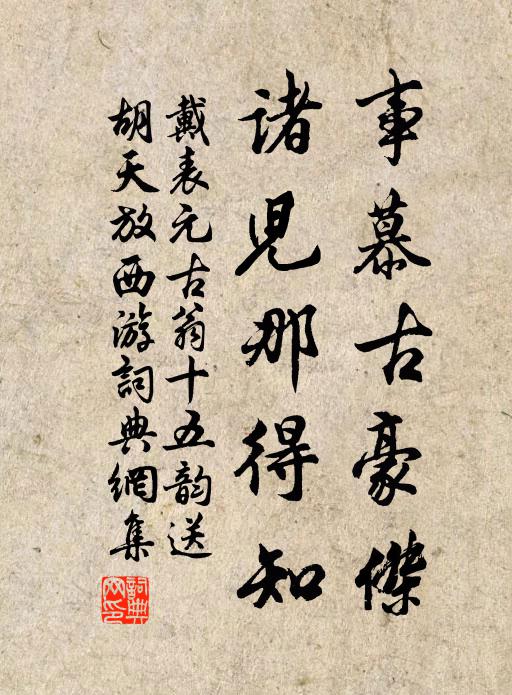 事慕古豪傑
諸兒那得知
戴表元古翁十五韵送
胡天放西游詞典網集
詞典网印